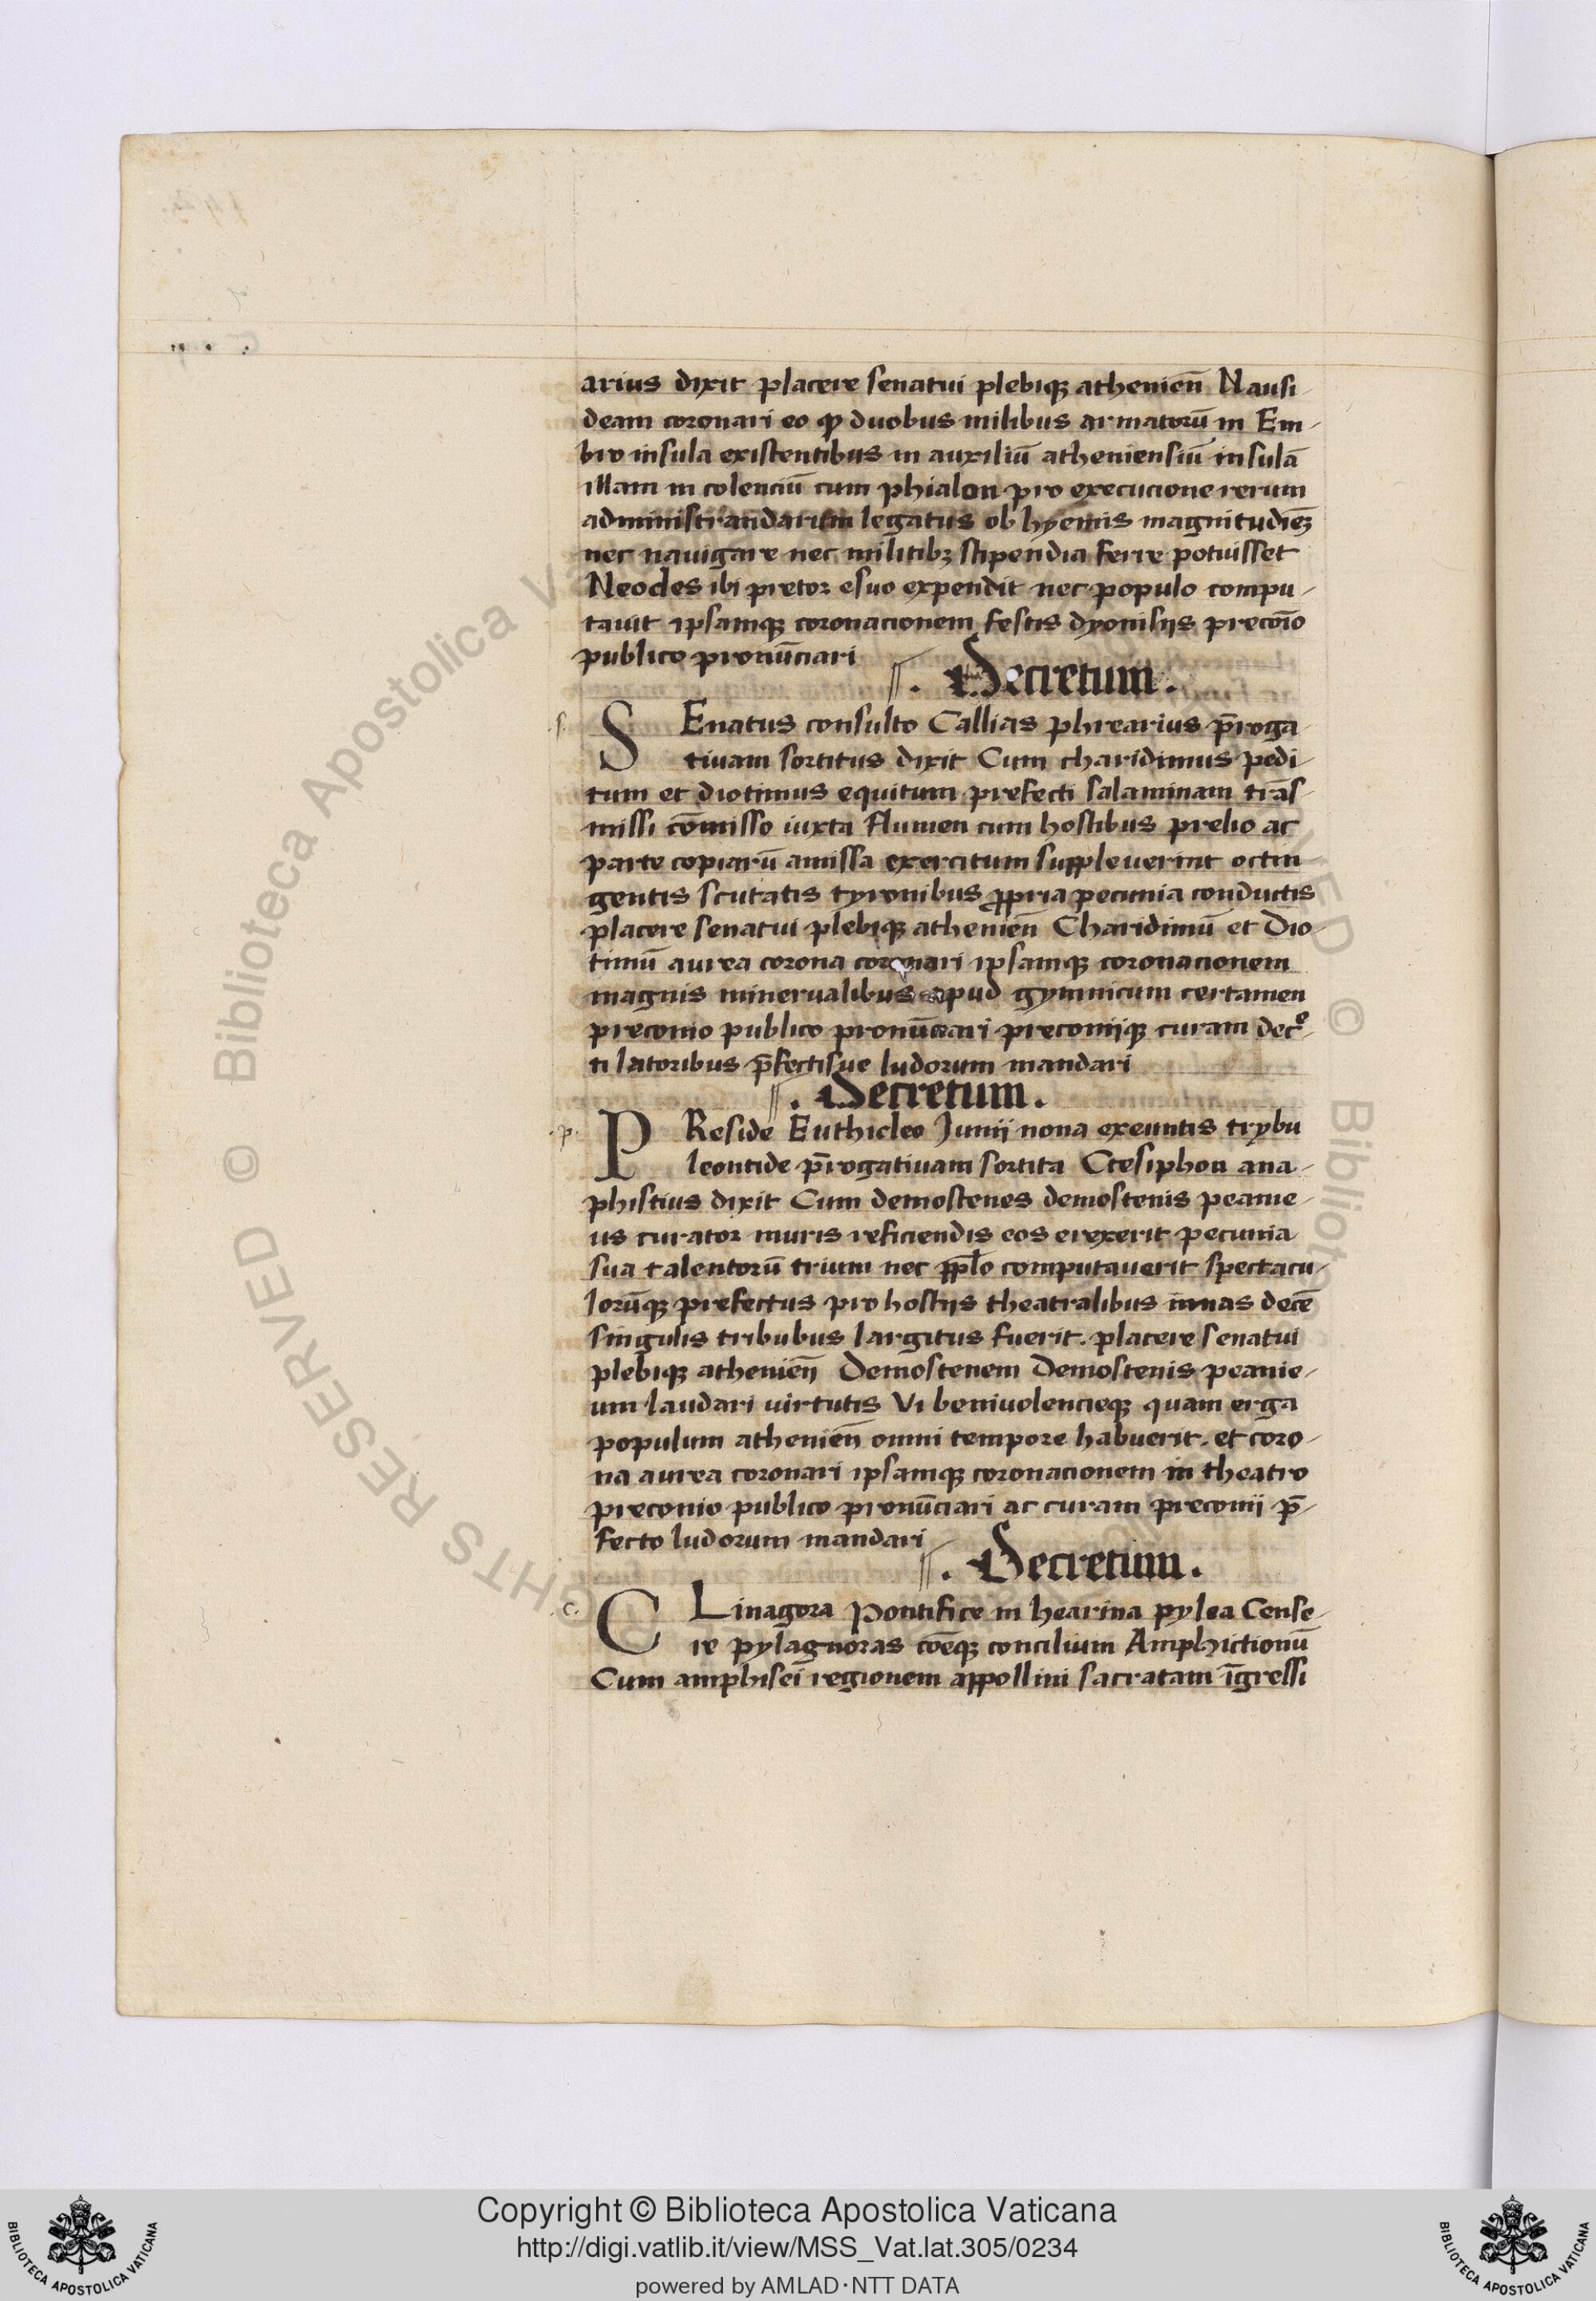 arius dixit placere senatui plebiqꝫ athenien̄ Nausi-
deam coronari eo ꝙ duobus milibus armatorū in Em-
bro insula existentibus in auxiliū atheniensiū insulā
illam in colenciū cum phialon pro execucione rerum
administrandarum legatus ob hyemis magnitudiēꝫ
nec nauigare nec militibꝫ stipendia ferre potuisset
Neodes ibi pretor esuo expendit nec populo compu-
tauit ipsamqꝫ coronacionem festis dyonisiis precōio
publico pronūciari
Decretum.
.s.
SEnatus consulto Callias phrearius p̄roga-
tiuam sortitus dixit Cum charidimus pedi-
tum et diotimus equitum prefecti salaminam trās-
missi cōmisso iuxta flumen cum hostibus prelio ac
parte copiarū amissa exercitum suppleuerint octin-
gentis scutatis tyronibus ꝓpria pecunia conductis
placere senatui plebiqꝫ athenien̄ Charidimū et Dio-
timū aurea corona coronari ipsamqꝫ coronacionem
magnis minerualibus apud gymnicum certamen
preconio publico pronūciari preconiiqꝫ curam decᵉ-
ti latoribus p̄fectisue ludorum mandari
Decretum.
.p.
PReside Euthicleo Junii nona exeuntis trybu
leontide p̄rogatiuam sortita Ctesiphon ana-
phistius dixit Cum demostenes demostenis peanie-
us curator muris reficiendis eos erexerit pecunia
sua talentorū trium nec pp̄lo computauerit spectacu-
lorūqꝫ prefectus pro hostiis theatralibus minas decē
singulis tribubus largitus fuerit. placere senatui
plebiqꝫ athenien̄ Demostenem Demostenis peanie-
um laudari virtutis Vi beniuolencieqꝫ quam erga
populum athenien̄ omni tempore habuerit. et coro-
na aurea coronari ipsamqꝫ coronacionem in theatro
preconio publico pronūciari ac curam preconii p̄-
fecto ludorum mandari
Decretum.
.c.
CLinagora Pontifice in hearina pylea Cense-
re pylagnoras cōēqꝫ concilium Amphictionū
Cum amphisei regionem appollini sacratam īgressi
Copyright © Biblioteca Apostolica Vaticana
http://digi.vatlib.it/view/MSS_Vat.lat.305/0234
powered by AMLAD·NTT DATA